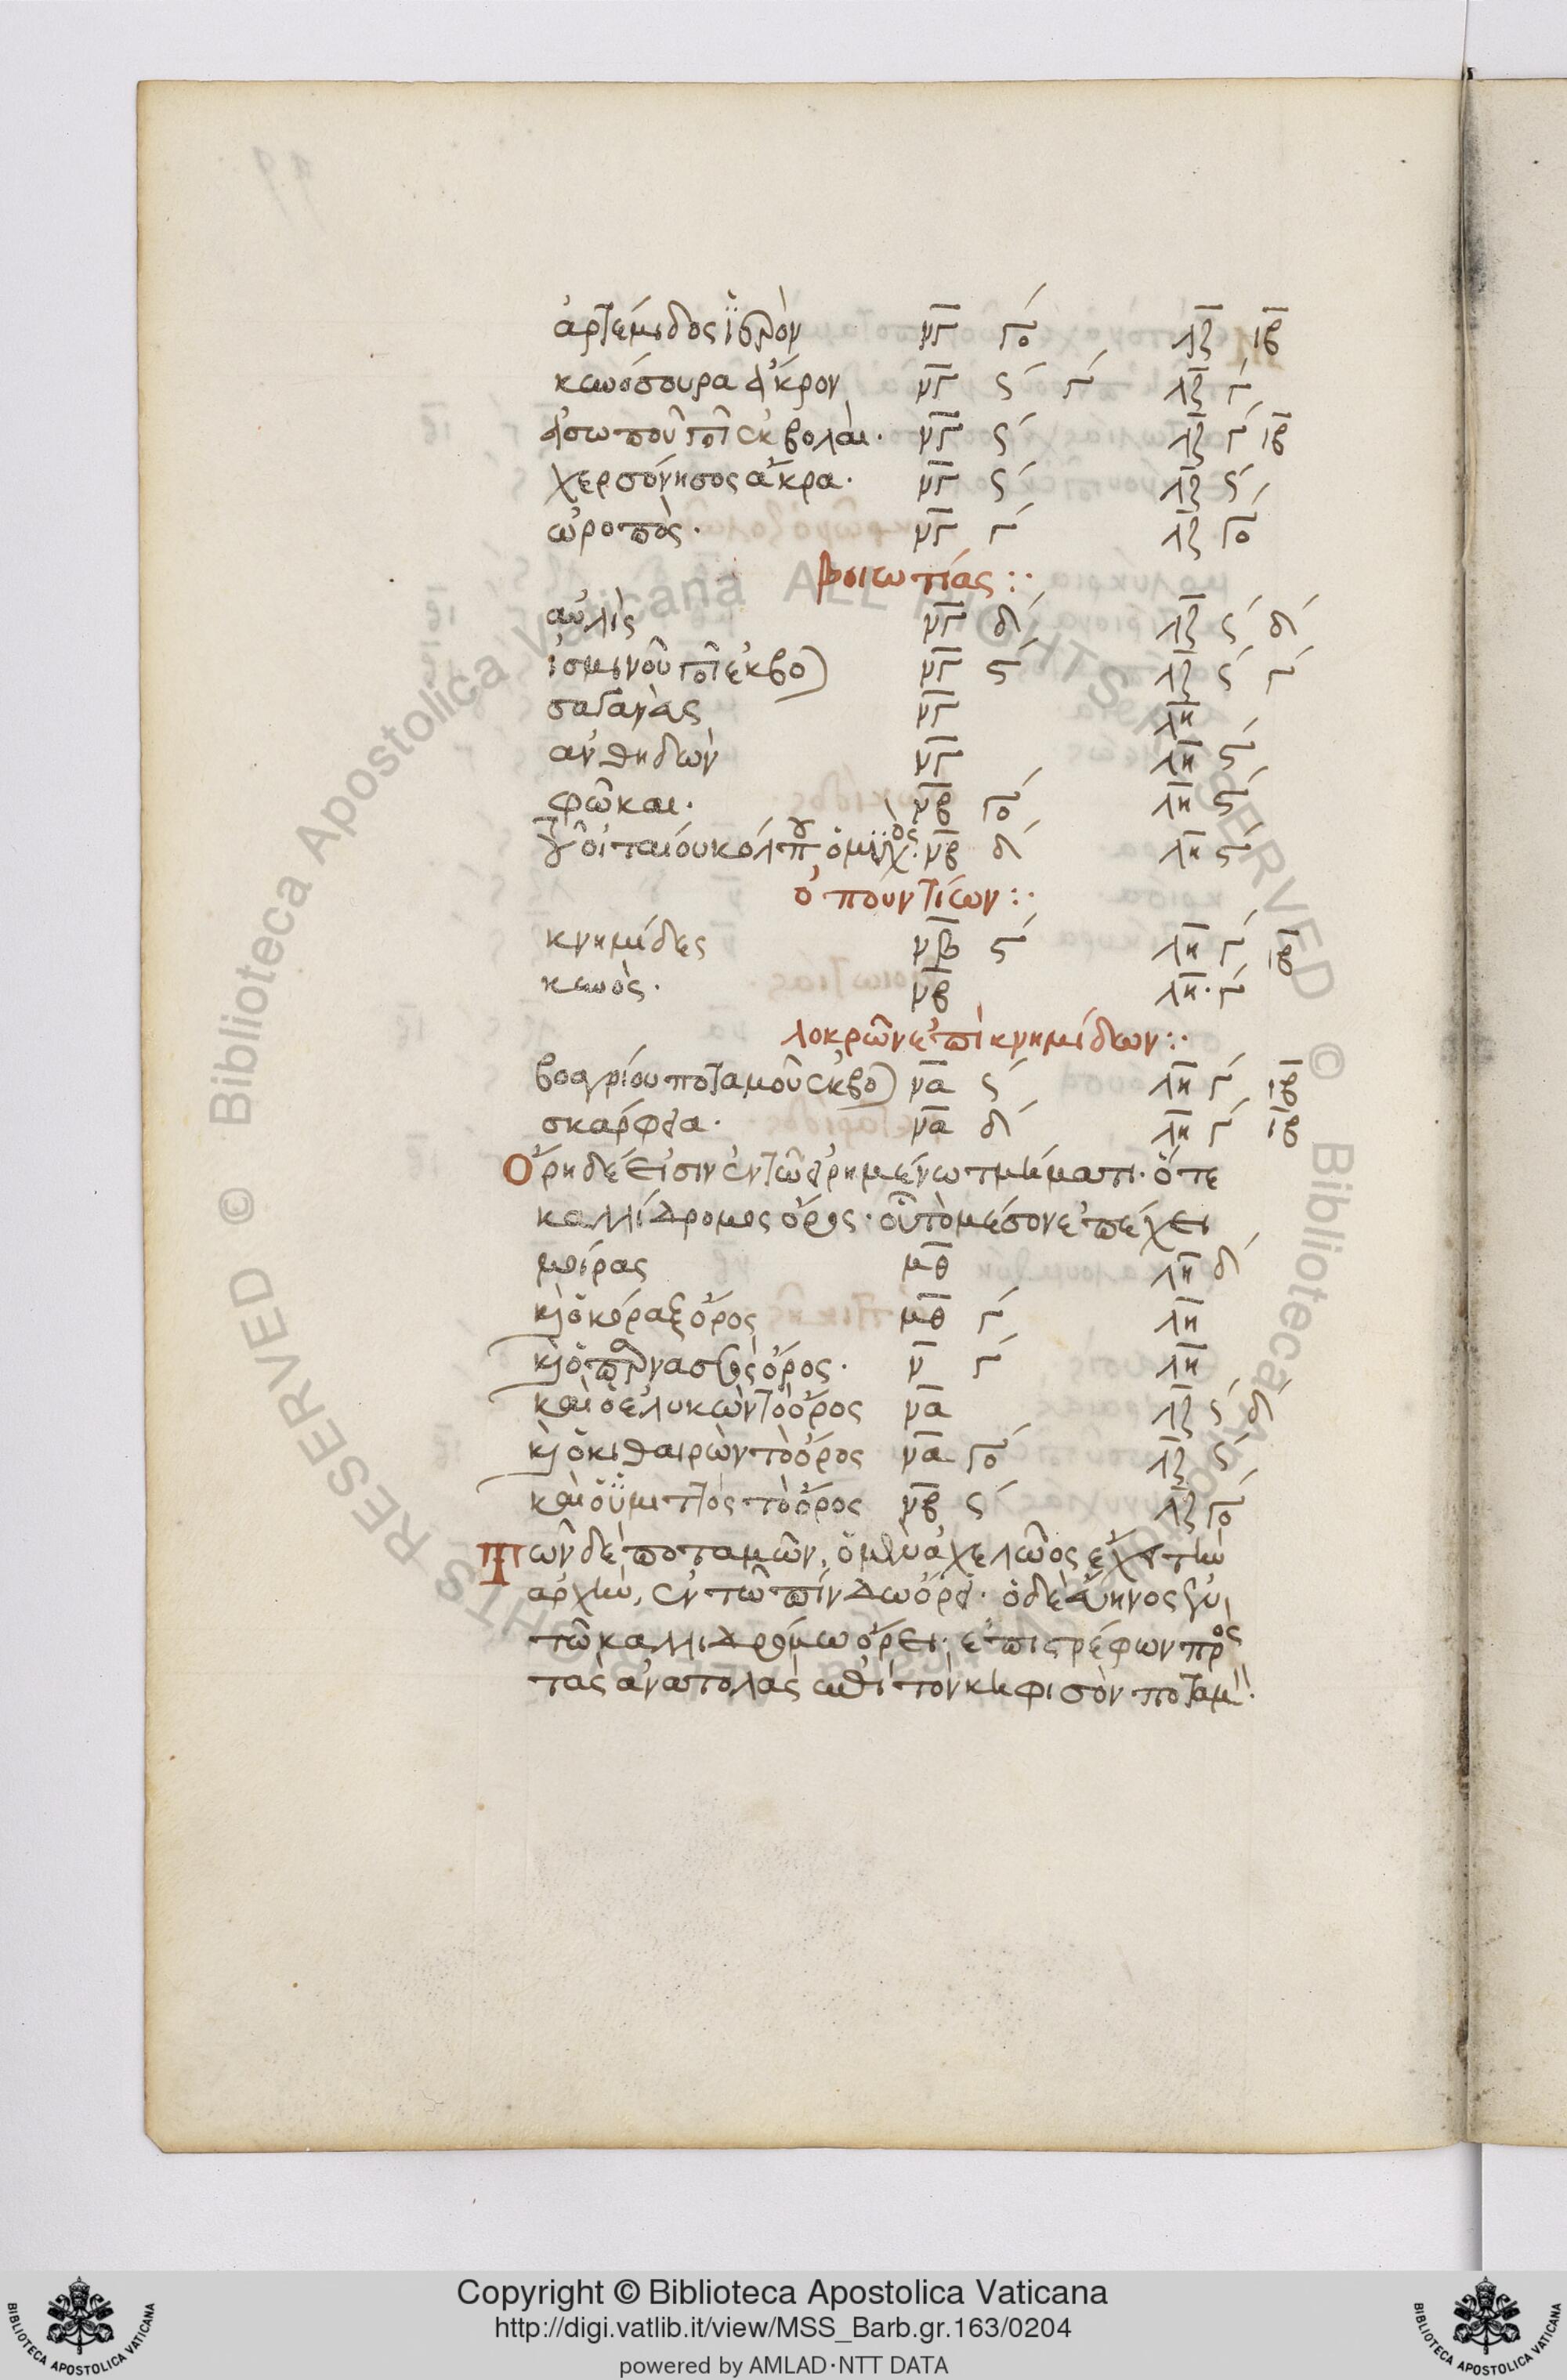 ἀρτέμιδος ἱερὸν νγ γο λζ ιβ
κωόσουρα ἄκρον νγ ς γ λζ γ
ἀσωποῦ ποτ ἐκβολαί· νγ ς λζ γ ιβ
χερσόνησος ἄκρα· νγ ς λζ ς
ὠροπὸς· νγ γ λζ γο
βοιωτίας :·
αὐλὶς νγ δ λζ ς δ
ἰσμινοῦ ποτ ἐκβο νγ ς λζ ς γ
σαγανὰς νγ λη
ἀνθηδὼν νγ λη ς
φῶκαι· νβ γο λη ς
τοῦ οἰταιόυ κόλπου ὁ μυχὸς· νβ δ λη ς
ὀπουντίων :·
κνημίδες νβ ς λη γ ιβ
κωὸς· νβ λη· γ
λοκρῶν ἐπικνημιδίων :·
βοαγρίου ποταμοῦ ἐκβο να ς λη γ ιβ
σκάρφεια· να δ λη γ ιβ
Ὄρη δέ εἰσιν ἐν τῶ εἰρημένω τμήματι· ὅ τε
καλλίδρομος ὄρος· οὗ τὸ μέσον ἐπέχει
μοίρας μθ λη δ
κὶ ὁ κόραξ ὄρος μθ γ λη
κὶ ὁ παρνασσὸς ὄρος· ν γ λη
καὶ ὁ ἐλυκὼν τὸ ὄρος να λζ ς δ
κὶ ὁ κιθαιρὼν τὸ ὄρος να γο λζ ς
καὶ ὁ ὑμιττὸς τὸ ὄρος νβ ς λζ γο
Τῶν δὲ ποταμῶν, ὁ μὲν ἀχελῶος ἔχει τὴν
ἀρχὴν, ἐν τῶ πίνδω ὄρει· ὁ δὲ εὔηνος ἐν
τῶ καλλιδρόμω ὄρει· ἐπιστρέφων πρὸς
τὰς ἀνατολὰς ὠθεῖ τὸν κηφισὸν ποταμὸν·
Copyright © Biblioteca Apostolica Vaticana
http://digi.vatlib.it/view/MSS_Barb.gr.163/0204
powered by AMLAD·NTT DATA